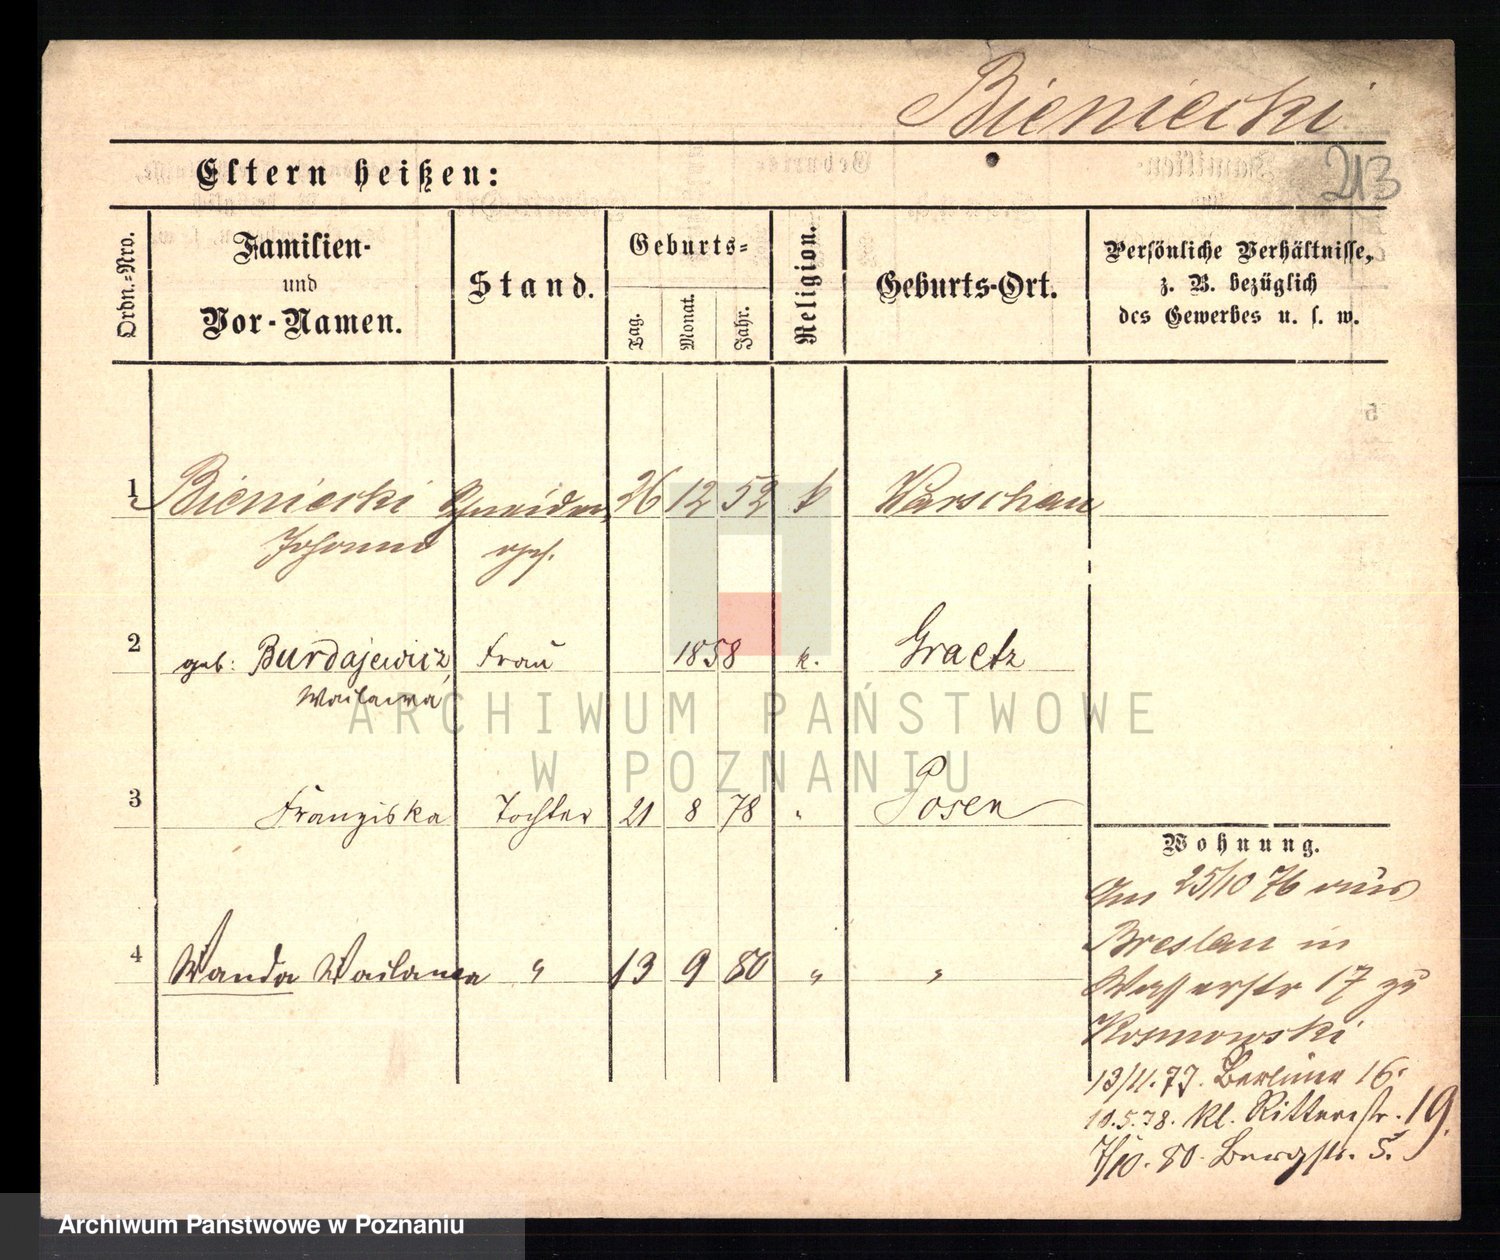 Bieniecki
213
Eltern heißen:
Ordn.-Nro.
Familien-
und
Vor-Namen.
Stand.
Geburts-
Tag.
Monat.
Jahr.
Religion.
Geburts-Ort.
Persönliche Verhältnisse,
z. B. bezüglich
des Gewerbes u. s. w.
1 Bieniecki Schneider 26 12 52 k Warschau
Johann
2 geb: Burdajewicz, Frau 1858 k. Graetz
3 Franziska Tochter 21 8 78 " Posen
4 Wanda " 13 9 80 " "
Wohnung.
Am 25/10 76 aus
Breslau in
Wasserstr 17 zu
Kosmowski
13/11. 77. Berliner 16.
10.5.78. Kl. Ritterstr. 19.
7/10. 80. Bergstr. 5.
ARCHIWUM PAŃSTWOWE
W POZNANIU
Archiwum Państwowe w Poznaniu